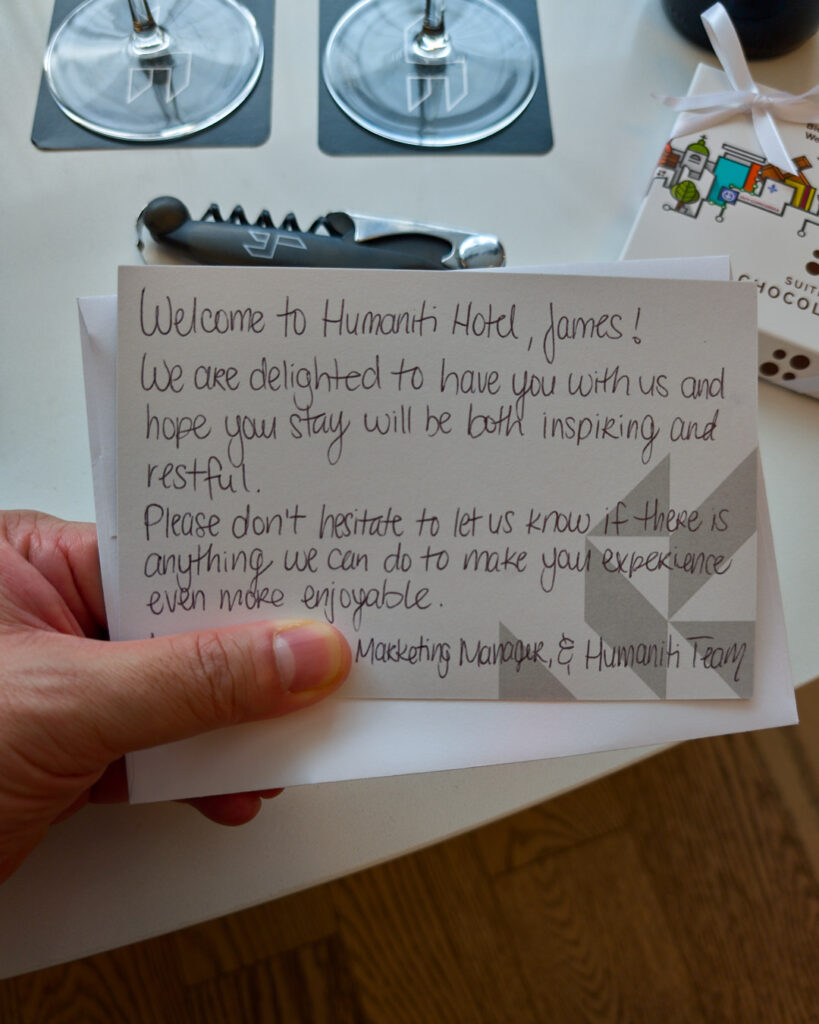 SUIT
CHOCOL
Welcome to Humaniti Hotel, James!
We are delighted to have you with us and
hope your stay will be both inspiring and
restful.
Please don't hesitate to let us know if there is
anything we can do to make your experience
even more enjoyable.
Marketing Manager, & Humaniti Team